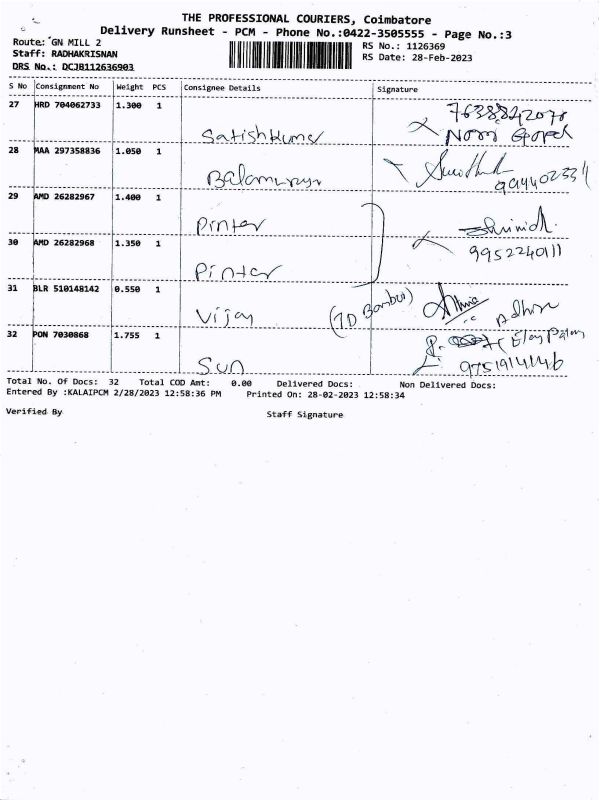 THE PROFESSIONAL COURIERS, Coimbatore
Delivery Runsheet - PCM - Phone No.:0422-3505555 - Page No.:3
Route: GN MILL 2
Staff: RADHAKRISNAN
DRS No.: DCJB112636903
RS No.: 1126369
RS Date: 28-Feb-2023
S No Consignment No Weight PCS Consignee Details Signature
27 HRD 704062733 1.300 1
Satishkumar
28 MAA 297358836 1.050 1
Balamurugan
29 AMD 26282967 1.400 1
Printer
30 AMD 26282968 1.350 1 9952240111
Pinter
31 BLR 510148142 0.550 1
Vijay
32 PON 7030868 1.755 1
Sun 9751914146
Total No. Of Docs: 32 Total COD Amt: 0.00 Delivered Docs: Non Delivered Docs:
Entered By :KALAIPCM 2/28/2023 12:58:36 PM Printed On: 28-02-2023 12:58:34
Verified By Staff Signature